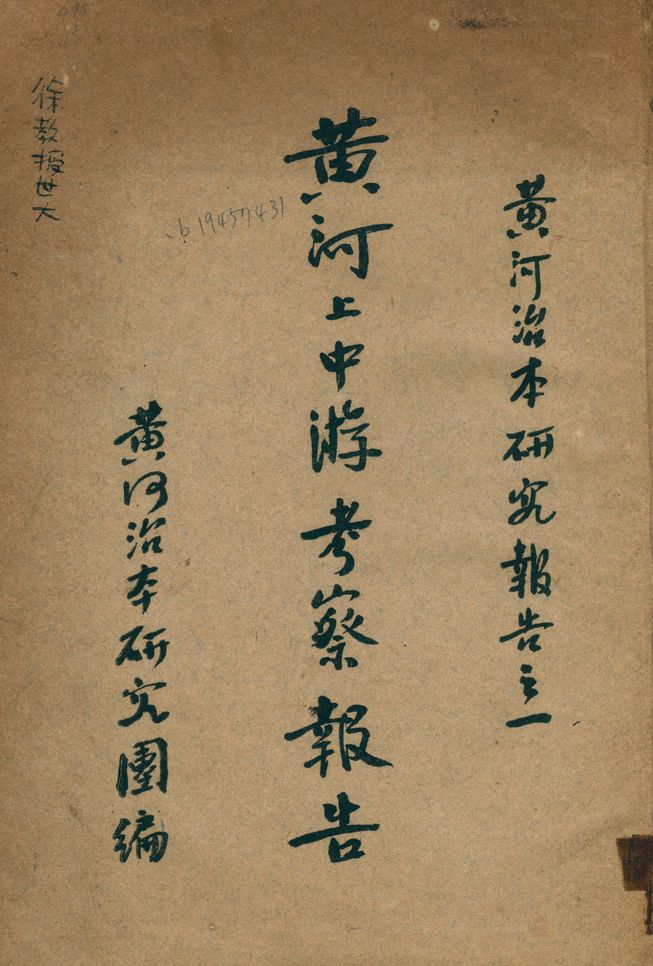 黃河治本研究報告之一
黃河上中游考察報告
黃河治本研究團編
徐教授世大
b 19457431
495